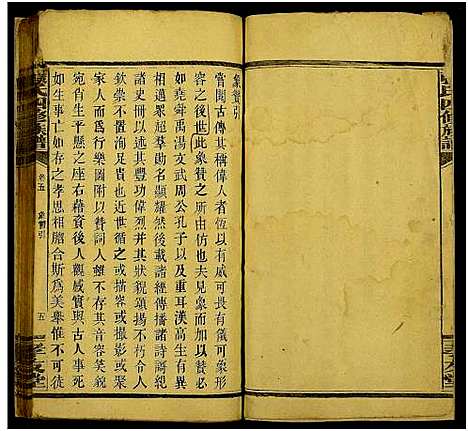 象贊引
嘗聞古傳其稱偉人者恆以有威可畏有儀可象形
容之後世此象贊之所由仿也夫見象而加以贊必
如堯舜禹湯文武周公孔子以及重耳漢高生有異
相遇眾超羣勛名顯耀然後載諸經傳播諸詩謌紀
諸史冊以述其豐功偉烈并其狀貌頌揚不朽令人
欽崇不置洵足貴也近世循之或描容或撮影或聚
家人而爲行樂圖附以贊詞人雖不存其音容笑貌
宛肖生平懸之座右藉資後人觀感實與古人事死
如生事亡如存之孝思相脗合斯爲美舉惟不可徒
氏四修族譜
卷五
象贊引
五
孝友堂
氏四修族譜
孝友堂